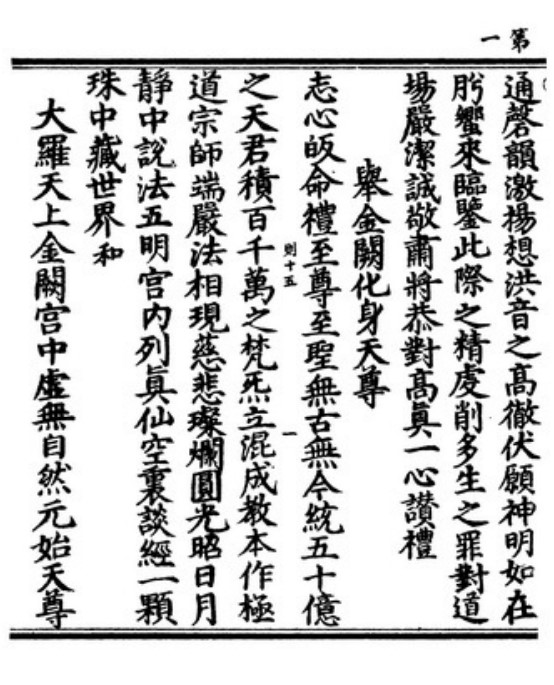 第一
通磬韻激揚想洪音之高徹伏願神明如在
肹蠁來臨鑒此際之精虔削多生之罪對道
場嚴潔誠敬肅將恭對高真一心讃禮
舉金闕化身天尊
志心皈命禮至尊至聖無古無今統五十億
則十五
一
之天君積百千萬之梵炁立混成教本作極
道宗師端嚴法相現慈悲璨爛圓光昭日月
靜中說法五明宮內列眞仙空裏談經一顆
珠中藏世界和
大羅天上金闕宮中虛無自然元始天尊